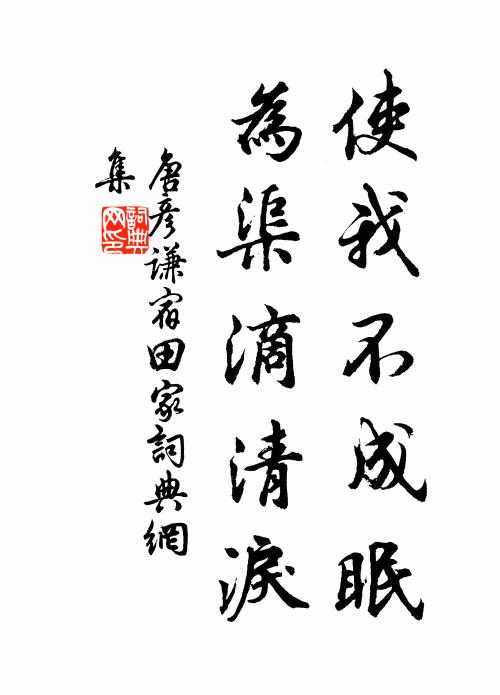 使我不成眠
為渠滴清淚
唐彥謙宿田家詞典網
集
詞典网印